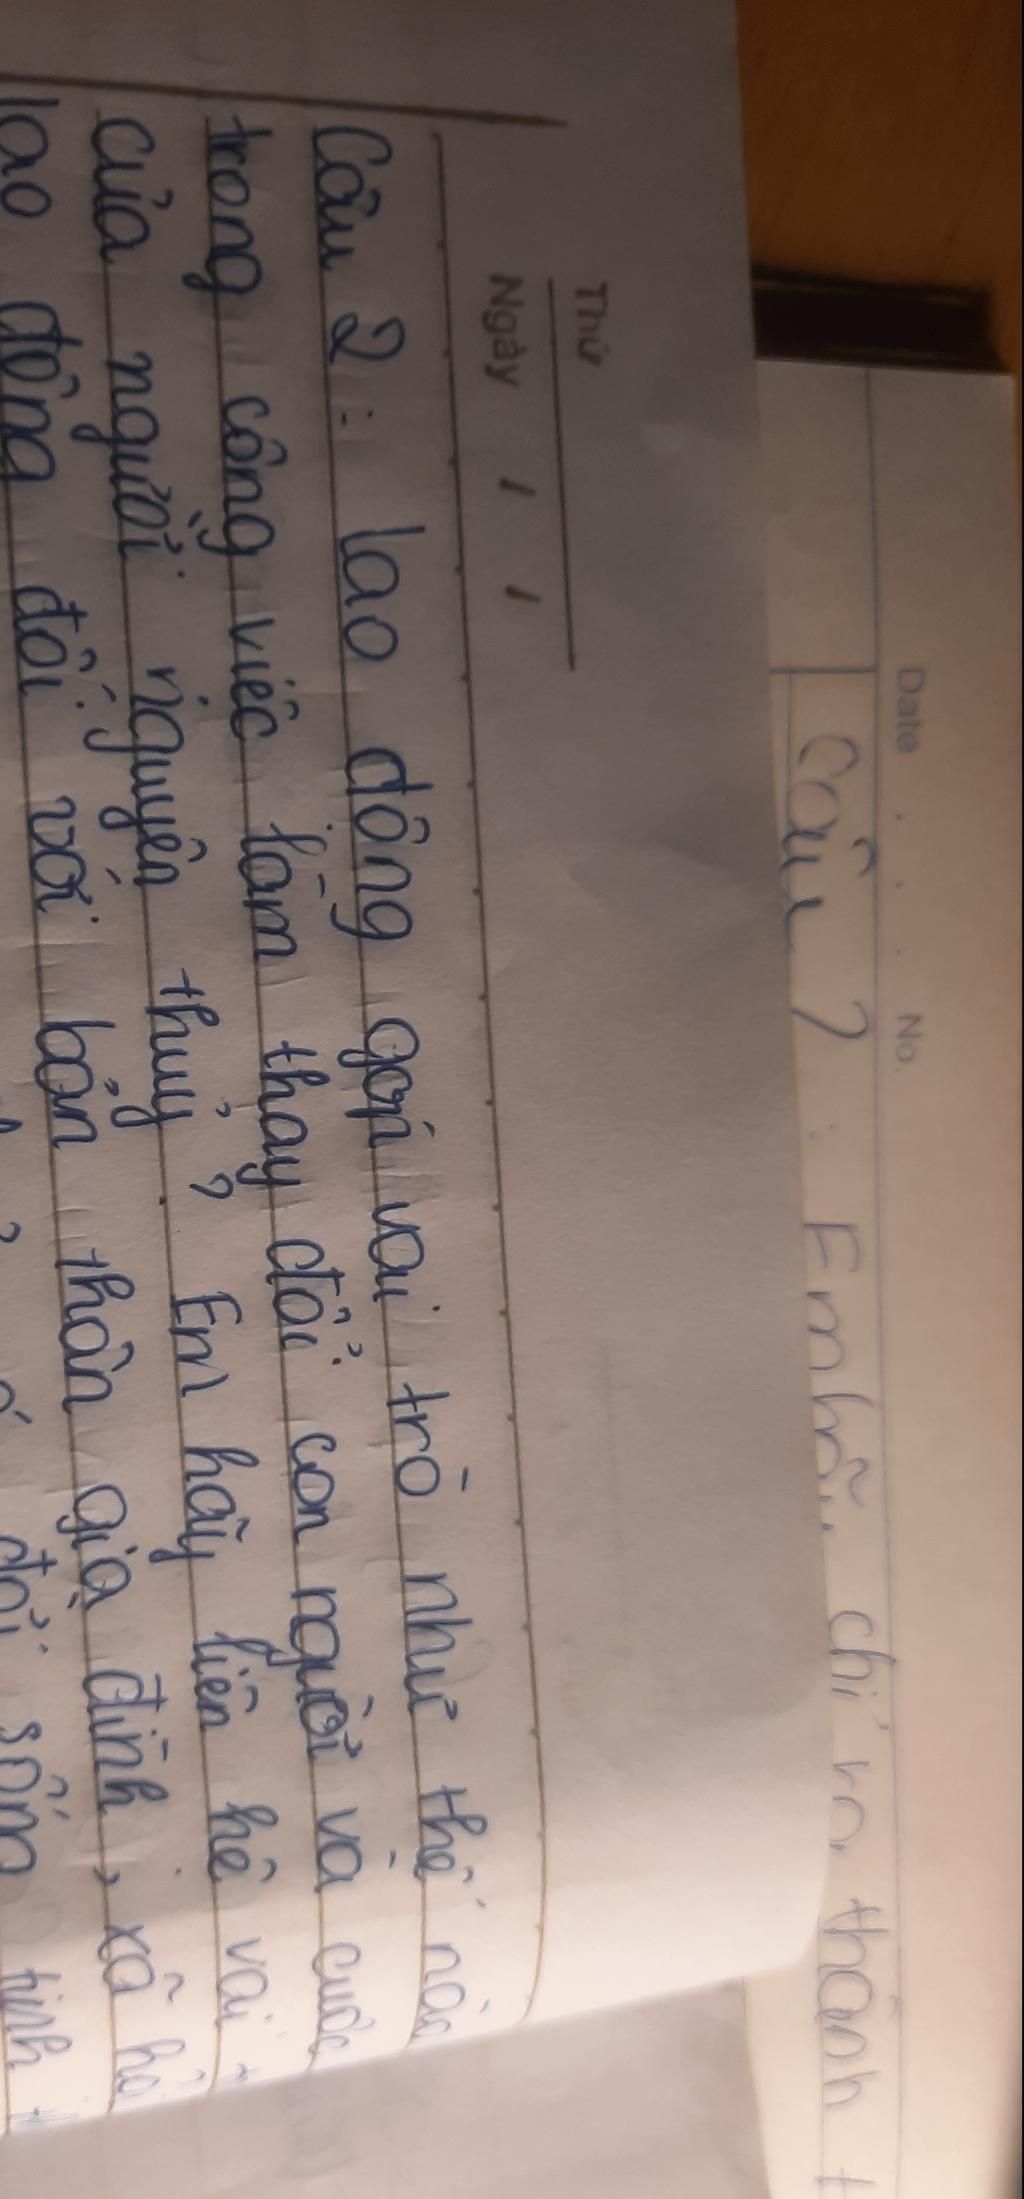 Date No.
Câu 2: Em hãy chỉ ra thành
Thứ
Ngày / /
Câu 2: lao động góp vai trò như thế nào
trong công việc làm thay đổi con người và cuộc
của người nguyên thuỷ? Em hãy liên hệ vai
lao động đối với bản thân gia đình, xã hộ
đời sống tinh